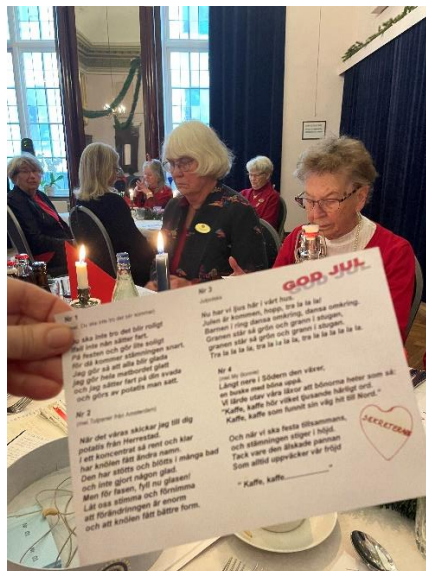 GOD JUL
Nr 1
Nu ska inte tro det blir roligt
ifall inte nån sätter fart.
På festen och gör lite soligt
för då kommer stämningen snart.
Jag gör så att alla blir glada
jag gör hela matbordet glatt
och jag sätter fart på din svada
och görs av potatis man satt.
Nr 2
(mel Tulpaner från Amsterdam)
När det våras skickar jag till dig
potatis från Herrestad.
I ett koncentrat så rent och klar
har knölen fått ändra namn.
Den har stötts och blötts i många bad
och inte gjort någon glad.
Men för fasen, fyll nu glasen!
Låt oss stimma och förnimma
att förändringen är enorm
och att knölen fått bättre form.
Nr 3
Julpolska
Nu har vi ljus här i vårt hus.
Julen är kommen, hopp, tra la la la!
Barnen i ring dansa omkring, dansa omkring.
Granen står så grön och grann i stugan,
granen står så grön och grann i stugan.
Tra la la la la, tra la la la la, tra la la la la.
Nr 4
(mel My Bonnie)
Långt nere i Södern den växer,
en buske med böna uppa.
Vi lärde utav våra läxor att bönorna heter som så:
"Kaffe, kaffe hör vilket ljusande härligt ord.
Kaffe, kaffe som funnit sin väg hit till Nord."
Och när vi ska festa tillsammans,
och stämningen stiger i höjd.
Tack vare den älskade pannan
Som alltid uppväcker vår fröjd
" Kaffe, kaffe________"